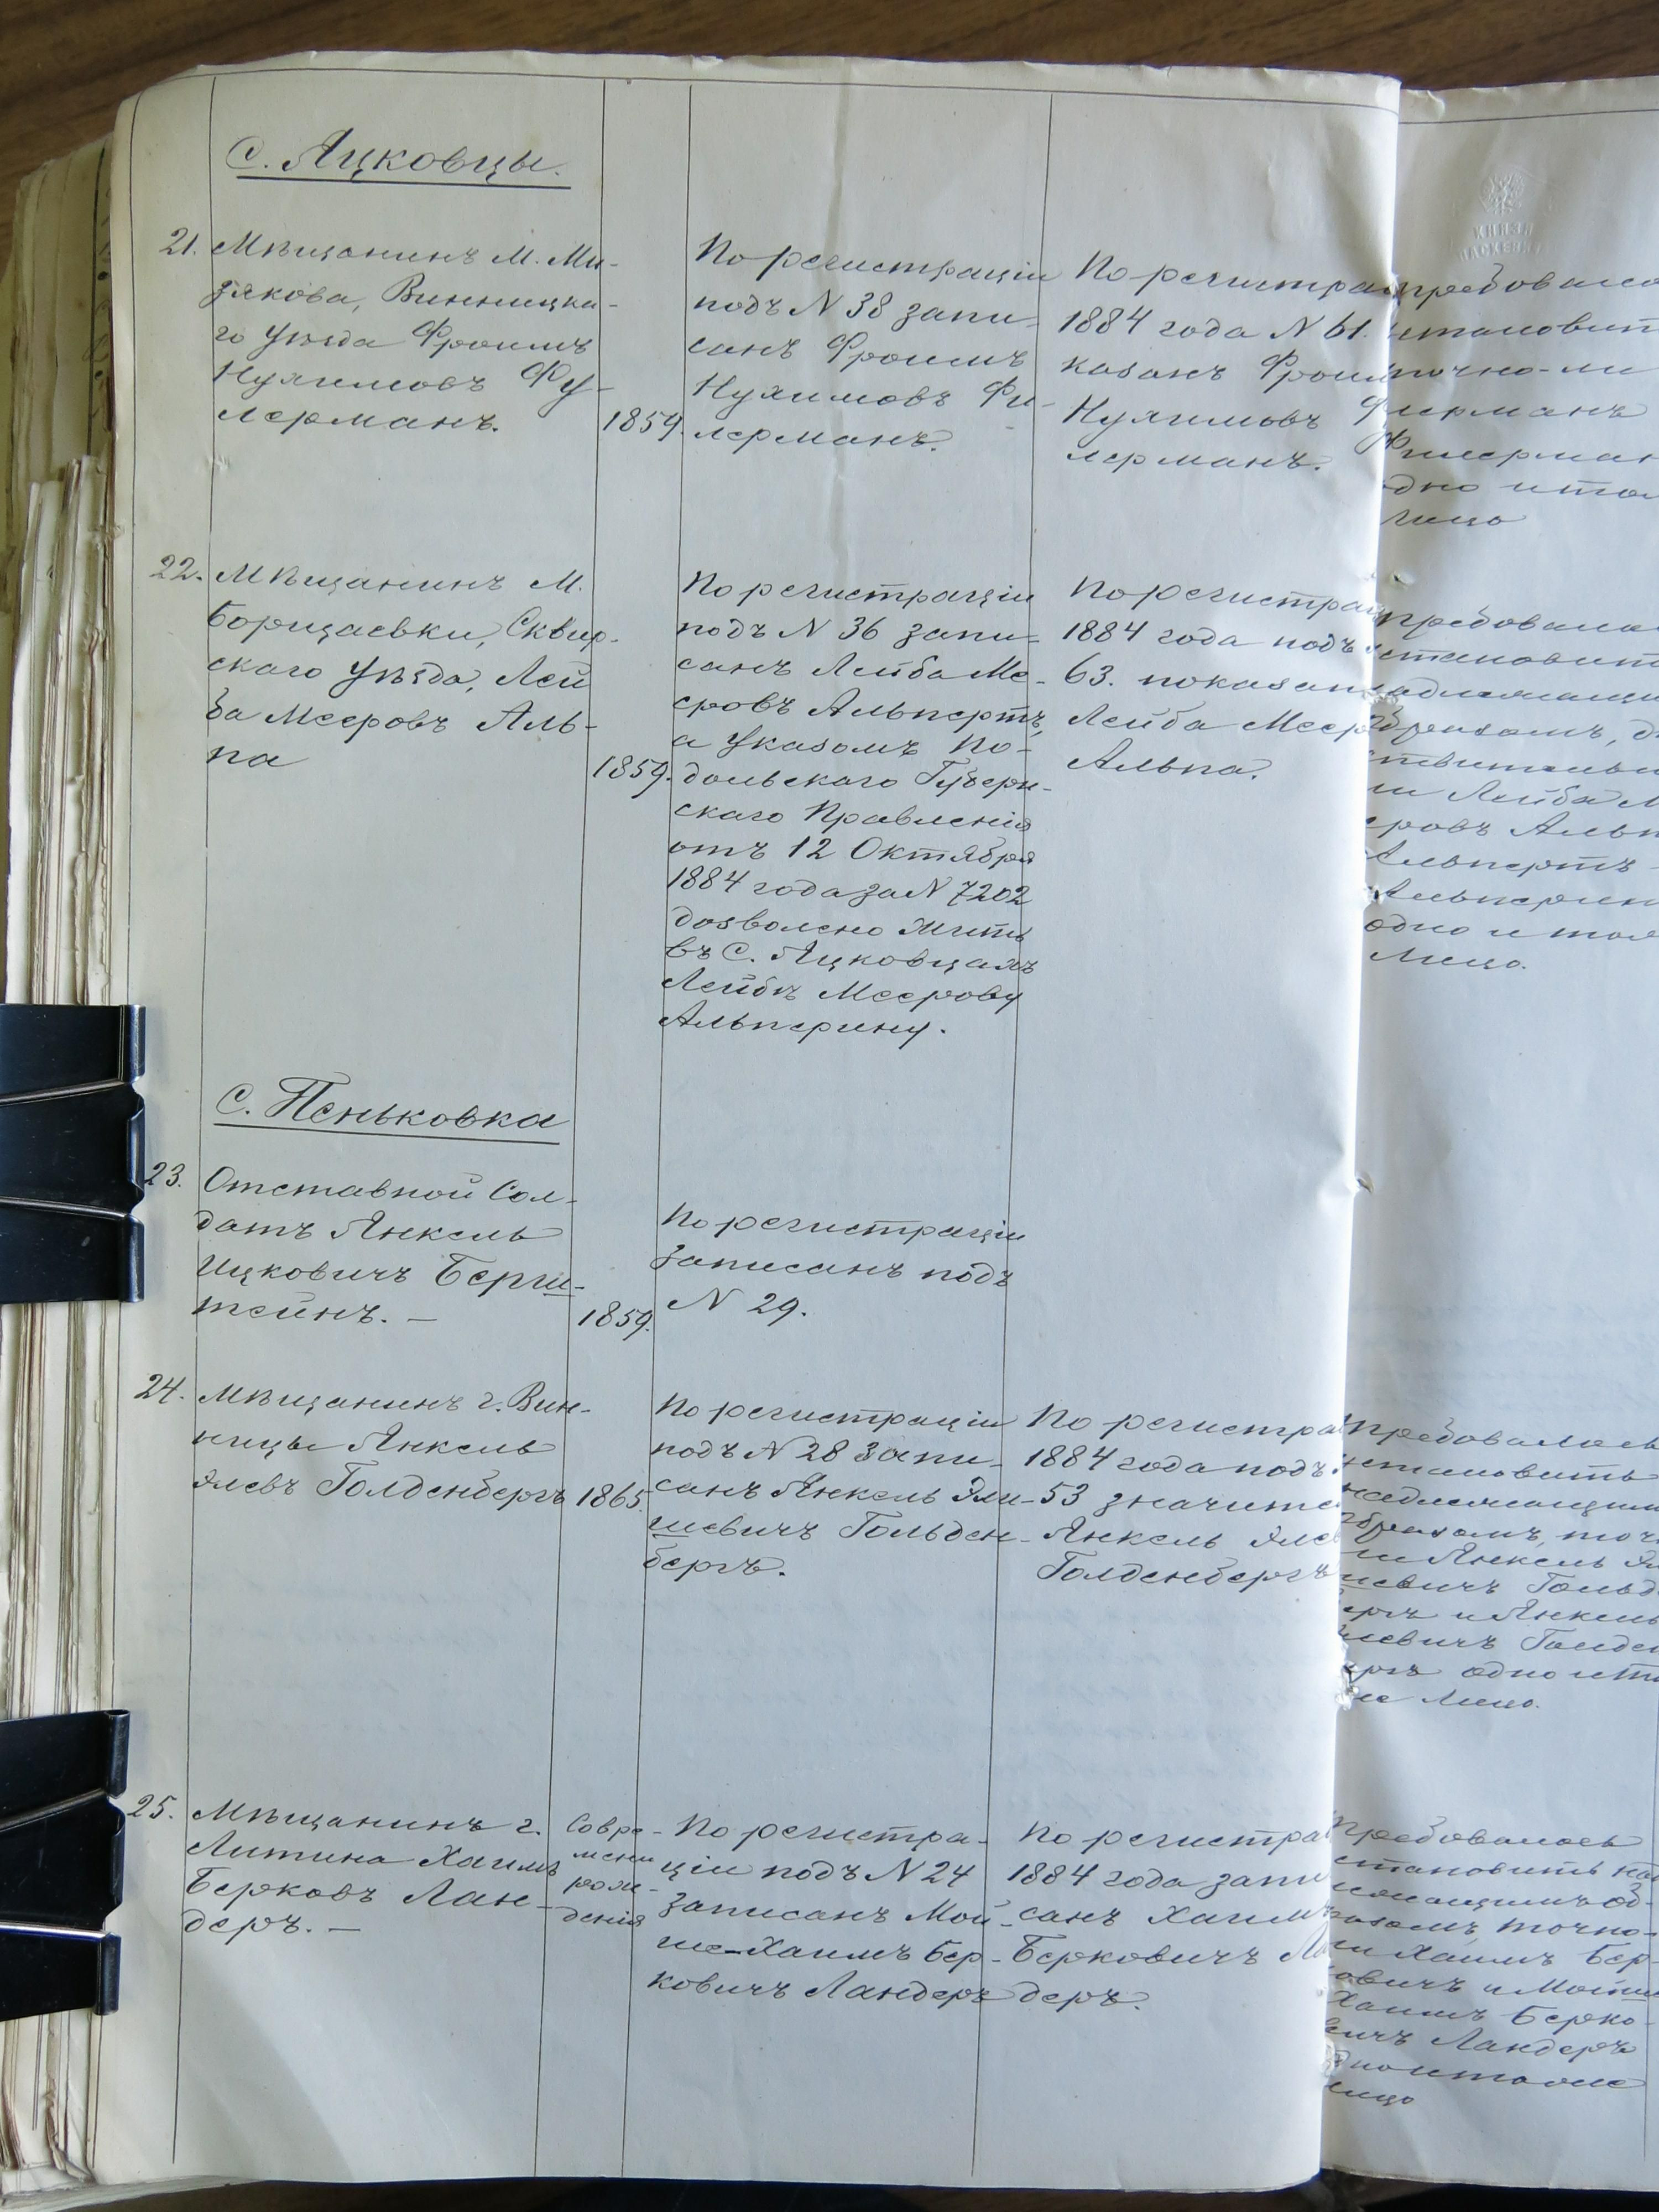 С. Яцковцы.
21. Мѣщанинъ М. Ми-
зякова, Винницка-
го Уѣзда Фроимъ
Нухимовъ Фу-
лерманъ.
1859.
По регистраціи
подъ N 38 запи-
санъ Фроимъ
Нухимовъ Фи-
лерманъ.
По регистра
1884 года N 61.
казанъ Фроим
Нухимовъ
лерманъ.
требовалос
становит
точно-ли
лерманъ
Филерман
одно и то
лицо
22. Мѣщанинъ М.
Борщаевки, Сквир-
скаго Уѣзда, Лей
ба Мееровъ Аль-
па
1859.
По регистраціи
подъ N 36 запи-
санъ Лейба Ме-
еровъ Альпертъ,
а Указомъ По-
дольскаго Губерн-
скаго Правленія
отъ 12 Октября
1884 года за N 7202
дозволено Жить
въ С. Яцковцахъ
Лейбѣ Меерову
Альперину.
По регистрац
1884 года подъ
63. показан
Лейба Меер
Альпа.
требовало
становит
надлежащи
образомъ, д
ствительн
ли Лейба М
еровъ Альп
Альпертъ
Альперин
одно и тож
лицо.
С. Пеньковка
23. Отставной Сол-
датъ Янкель
Ицковичъ Берш-
тейнъ. —
1859.
По регистраціи
записанъ подъ
N 29.
24. Мѣщанинъ г. Вин-
ницы Янкель
Элевъ Голденбергъ
1865.
По регистраціи
подъ N 28 запи-
санъ Янкель Эли-
шевичъ Гольден-
бергъ.
По регистра
1884 года подъ
53 значитс
Янкель Элев
Голденбергъ
требовалось
становить
надлежащим
образомъ, точ
ли Янкель Эл
шевичъ Гольд
ергъ и Янкель
левичъ Голде
ергъ одно и т
же лицо.
25. Мѣщанинъ г.
Литина Хаимъ
Берковъ Лан-
деръ. —
Совре-
мени
рож-
денія
По регистра-
ціи подъ N 24
записанъ Мой-
ше-Хаимъ Бер-
ковичъ Ландеръ
По регистра
1884 года запи
санъ Хаимъ
Берковичъ Ла
деръ.
требовалось
становить на
лежащимъ об-
разомъ, точно-
ли Хаимъ Бер-
ковичъ и Мойш
Хаимъ Берко-
вичъ Ландеръ
одно и тоже
лицо